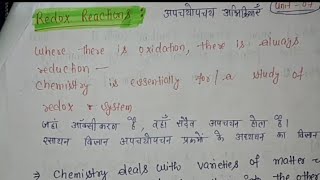 Redox Reactions : अपचयोपचय अभिक्रियाएँ Unit - 07
where there is oxidation, there is always
reduction –
Chemistry is essentially for/a study of
redox system
जहाँ ऑक्सीकरण है, वहाँ सदैव अपचयन होता है।
रसायन विज्ञान अपचयोपचयन प्रक्रमों के अध्ययन का विज्ञान
⇒ Chemistry deals with varieties of matter
into the other